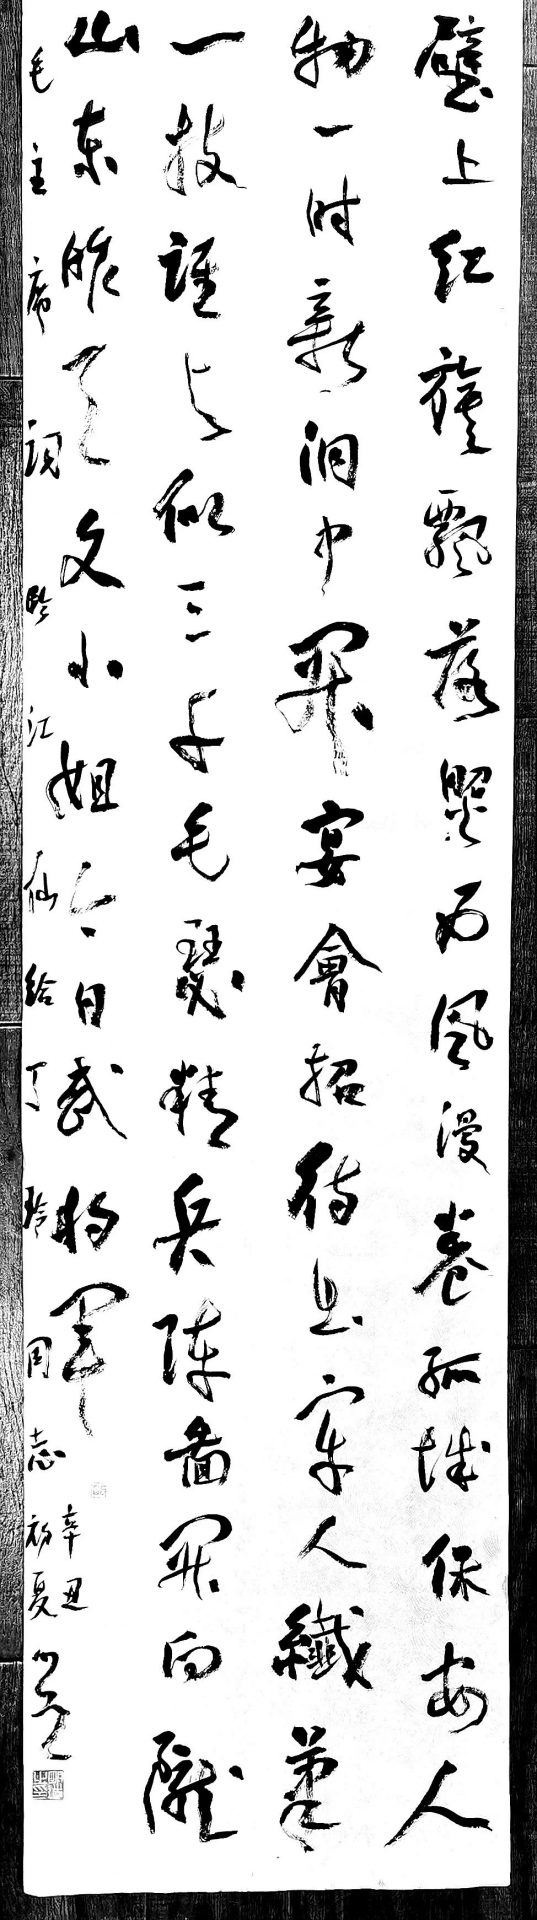 壁上红旗飘落照西风漫卷孤城保安人
物一时新洞中開宴會招待出牢人纖筆
一枝誰与似三千毛瑟精兵阵啚開向隴
山东昨天文小姐今日武将军
毛主席词临江仙给丁玲同志
辛丑
初夏